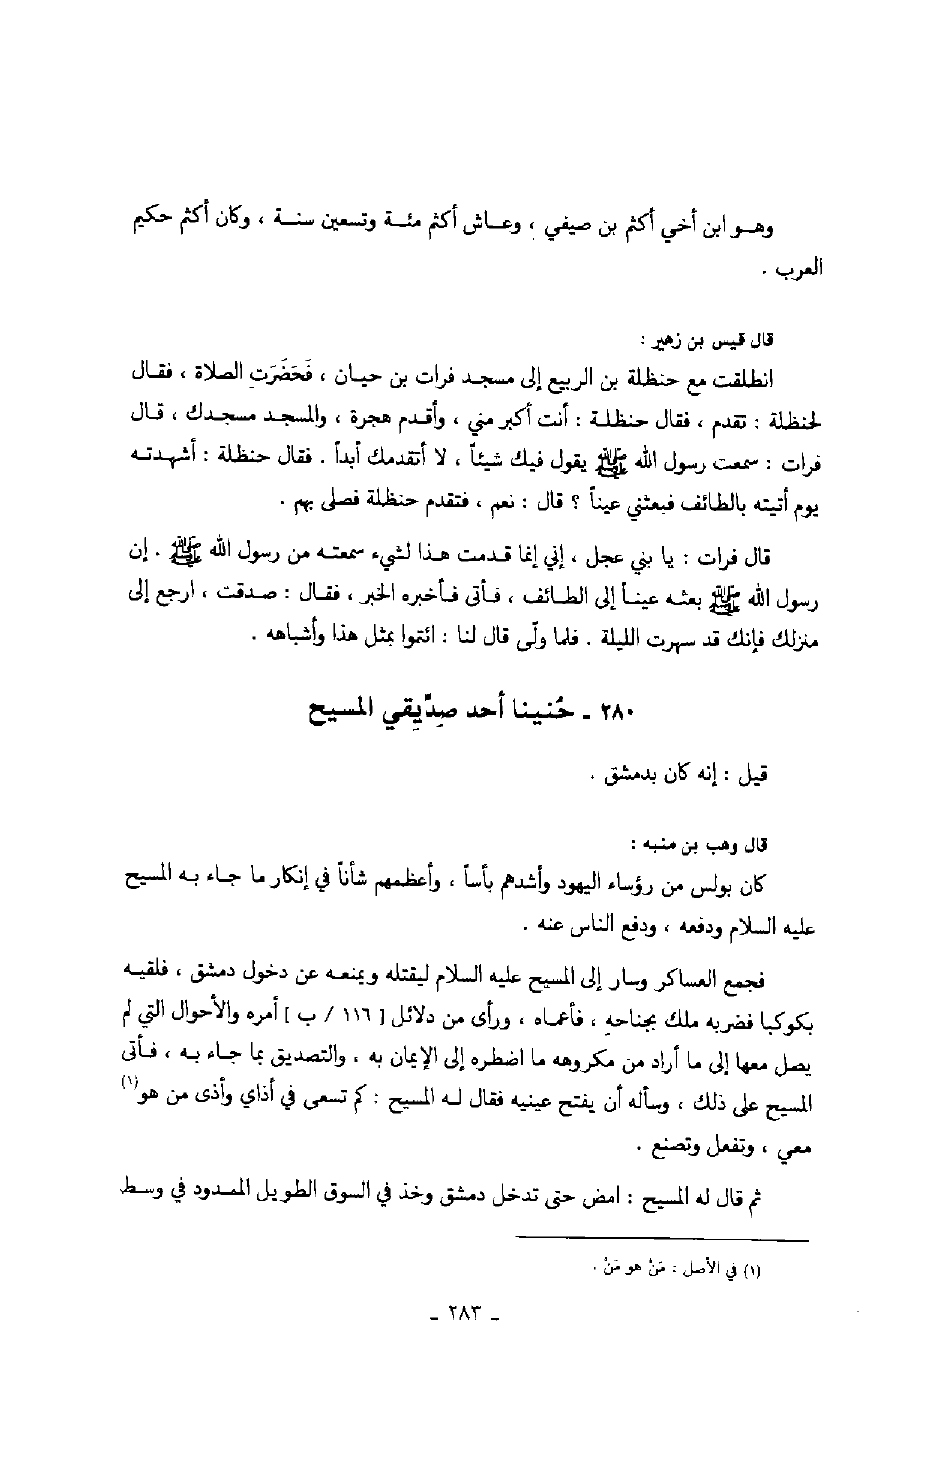 وهـو ابن أخي أكثم بن صيفي ، وعـاش أكثم مئـة وتسعين سنـة ، وكان أكثم حكيم
العرب .
قال قيس بن زهير :
انطلقت مع حنظلة بن الربيع إلى مسجد فرات بن حيـان ، فَحَضَرَتِ الصلاة ، فقـال
لحنظلة : تقدم ، فقال حنظلـة : أنت أكبر مني ، وأقـدم هجرة ، والمسجـد مسجـدك ، قـال
فرات : سمعت رسول الله ﷺ يقول فيك شيئاً ، لا أتقدمك أبداً . فقال حنظلة : أشهدتـه
يوم أتيته بالطائف فبعثني عيناً ؟ قال : نعم ، فتقدم حنظلة فصلى بهم .
قال فرات : يا بني عجل ، إني إنما قـدمت هـذا لشيء سمعتـه من رسول الله ﷺ . إن
رسول الله ﷺ بعثه عينـاً إلى الطـائف ، فـأتى فـأخبره الخبر ، فقـال : صـدقت ، ارجع إلى
منزلك فإنك قد سهرت الليلة . فلما ولّى قال لنا : ائتموا بمثل هذا وأشباهه .
٢٨٠ ـ حُنينا أحد صِدِّيقي المسيح
قيل : إنه كان بدمشق .
قال وهب بن منبه :
كان بولس من رؤساء اليهود وأشدهم بأساً ، وأعظمهم شأناً في إنكار ما جـاء بـه المسيح
عليه السلام ودفعه ، ودفع الناس عنه .
فجمع العساكر وسار إلى المسيح عليه السلام ليقتله ويمنعـه عن دخول دمشق ، فلقيـه
بكوكبا فضربه ملك بجناحه ، فأعماه ، ورأى من دلائل [ ١١٦ / ب ] أمره والأحوال التي لم
يصل معها إلى ما أراد من مكروهه ما اضطره إلى الإيمان به ، والتصديق بما جاء بـه ، فـأتى
المسيح على ذلك ، وسأله أن يفتح عينيه فقال لـه المسيح : كم تسعى في أذاي وأذى من هو(١)
معي ، وتفعل وتصنع .
ثم قال له المسيح : امض حتى تدخل دمشق وخذ في السوق الطويل الممـدود في وسـط
(١) في الأصل : مَنْ هو مَنْ .
ـ ٢٨٣ ـ